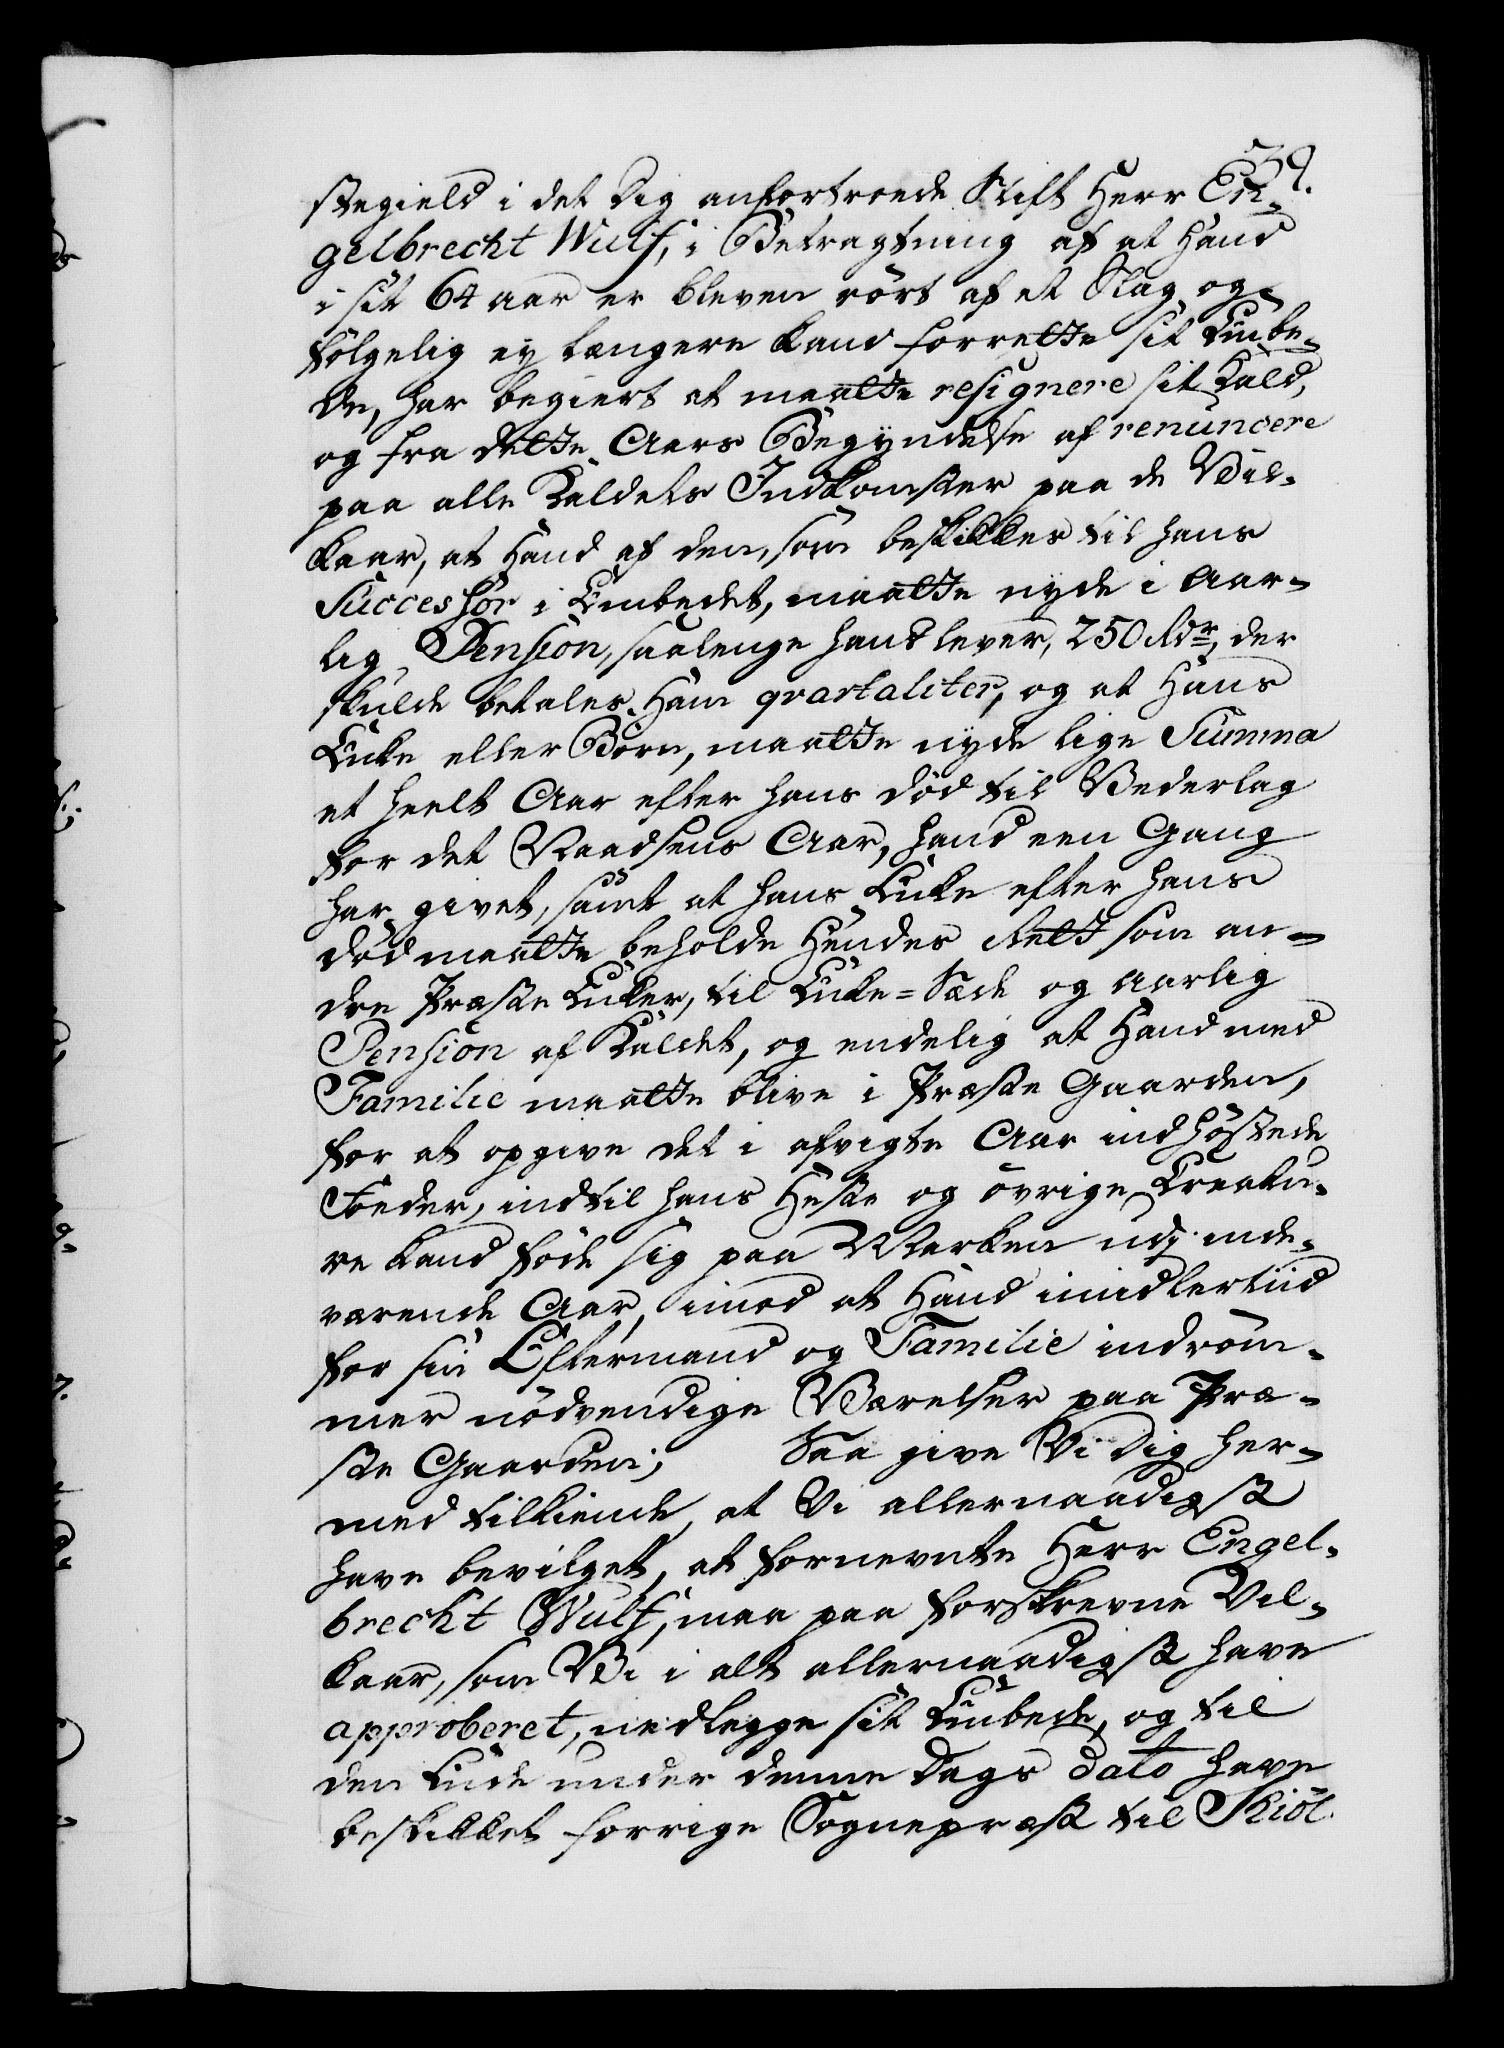 39.
stegield i det dig anfortroede Stift Herr En-
gelbrecht Wulf, i Betragtning af at Hand
i sit 64 aar er bleven rört af et Slag og
følgelig ey længere kand forrette sit Embe-
de, har begiert at maatte resignere sit Kald,
og fra dette Aars Begyndelse af renuncere
paa alle Kaldets Indkomster paa de Vil-
kaar, at Hand af den, som beskikkes til hans
Successor i Embedet, maatte nyde i aar-
lig Pension, saalenge hand lever, 250 Rdr, der
skulde betales Ham qvartaliter, og at Hans
Enke eller Børn, maatte nyde lige Summa
et heelt Aar efter hans död til Vederlag
for det Naadsens Aar, hand een Gang
har givet, samt at hans Enke efter hans
död maatte beholde Hendes Rett som an-
dre Præste Enker, til Enke-Sæde og aarlig
Pension af Kaldet, og endelig at Hand med
Familie maatte blive i Præste Gaarden,
for at opgive det i afvigte Aar indhøstede
Foeder, indtil hans Heste og övrige Creatu-
re kand föde sig paa Marken udj inde-
værende Aar, imod at Hand imidlertiid
for sin Eftermand og Familie indröm-
mer nödvendige Værelser paa Præ-
ste Gaarden; Saa give Vi dig her-
med tilkiende, at Vi allernaadigst
have bevilget, at fornevnte Herr Engel-
brecht Wulf, maa paa forskrevne Vil-
kaar, som Vi i alt allernaadigst have
approberet, nedlegge sit Embede, og til
den Ende under denne Dags dato have
beskikket forrige Sognepræst til Kiöl